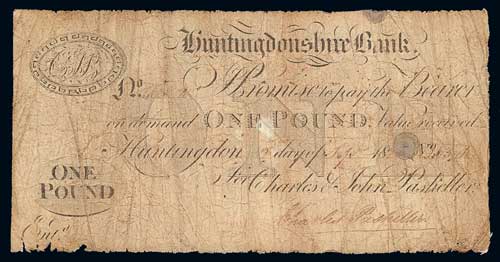 Huntingdonshire Bank.
No. I Promise to pay the Bearer
on demand ONE POUND, Value received
Huntingdon day of 18
ONE
POUND
For Charles & John Paskeller
Charles Paskeller
Entd.